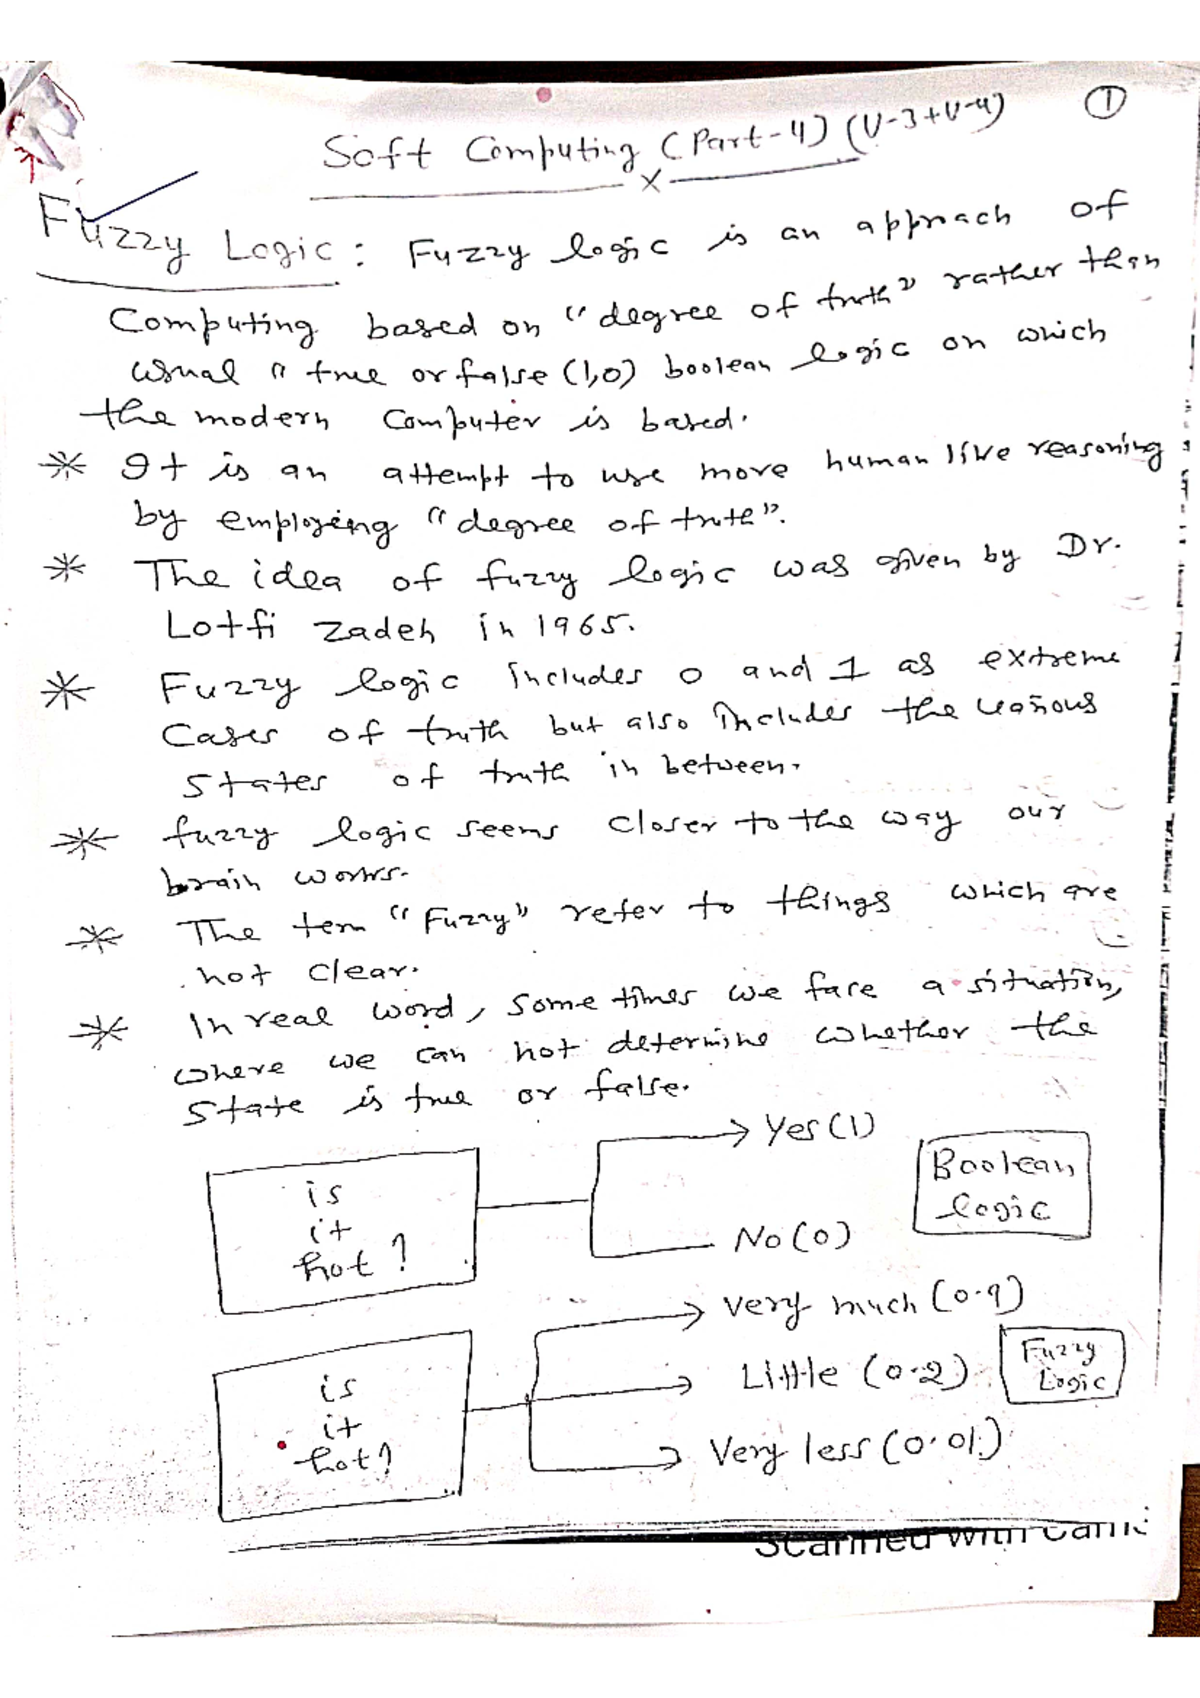 ①
Soft Computing (Part-4) (U-3+U-4)
x
Fuzzy Logic: Fuzzy logic is an approach of
Computing based on "degree of truth" rather than
usual " true or false (1,0) boolean logic on which
the modern Computer is based.
* It is an attempt to use more human like reasoning
by employing "degree of truth".
* The idea of fuzzy logic was given by Dr.
Lotfi Zadeh in 1965.
* Fuzzy logic includes 0 and 1 as extreme
Cases of truth but also includes the various
States of truth in between.
* fuzzy logic seems closer to the way our
brain works.
* The term "Fuzzy" refer to things which are
not clear.
* In real word, sometimes we face a situation,
where we can not determine whether the
State is true or false.
is
it
hot?
Yes (1)
No (0)
Boolean
logic
is
it
hot?
very much (0.9)
Little (0.2)
Very less (0.01)
Fuzzy
Logic
Scanned with Cam